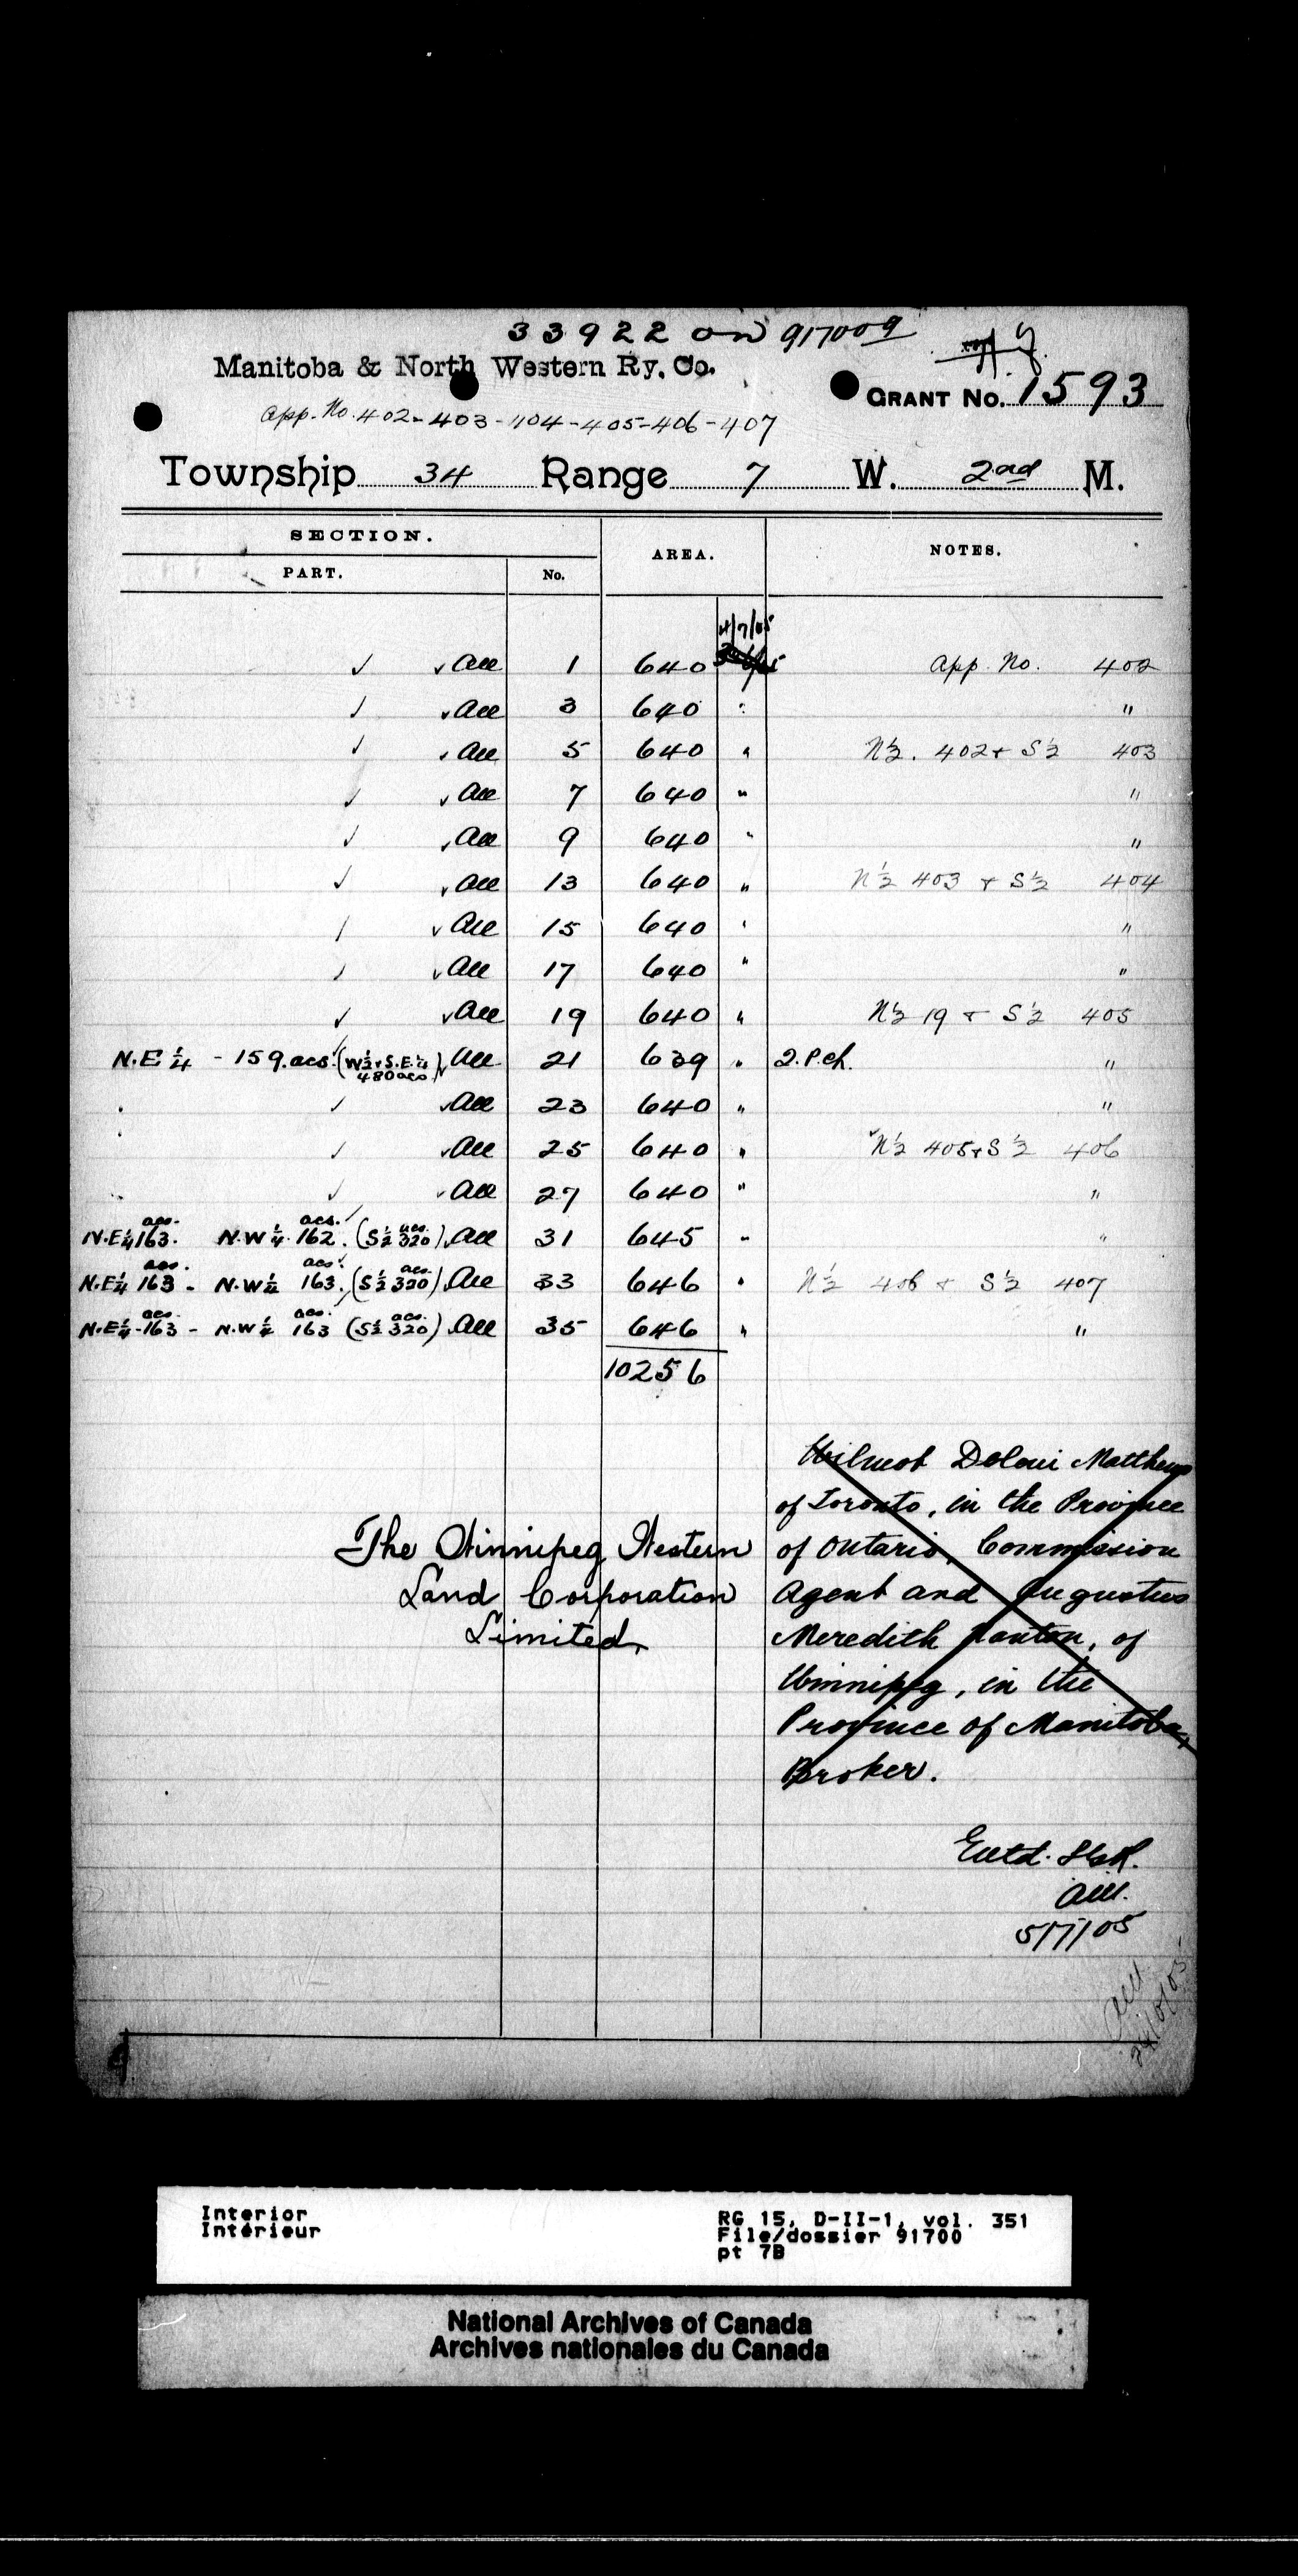 33922 on 917009
Manitoba & North Western Ry. Co.
GRANT No. 1593
App. No. 402-403-404-405-406-407
Township 34 Range 7 W. 2nd M.
SECTION. AREA. NOTES.
PART. No.
4/7/05
All 1 640 App. No. 402
All 3 640 " "
All 5 640 " N½. 402 + S½ 403
All 7 640 " "
All 9 640 " "
All 13 640 " N½ 403 + S½ 404
All 15 640 " "
All 17 640 " "
All 19 640 " N½ 19 + S½ 405
N.E¼ - 159.acs. (W½+S.E.¼ 480acs) All 21 639 " 2.P.ch. "
All 23 640 " "
All 25 640 " N½ 405+S½ 406
All 27 640 " "
N.E¼ 163. acs. N.W¼. 162. acs. (S½ 320 acs.) All 31 645 " "
N.E¼ 163 acs. - N.W¼ 163. acs. (S½ 320 acs.) All 33 646 " N½ 406 + S½ 407
N.E¼-163 acs. - N.W¼ 163 acs. (S½ 320 acs.) All 35 646 " "
10256
Wilmot Deloui Matthews
of Toronto, in the Province
of Ontario, Commission
Agent and Augustus
Meredith Nanton, of
Winnipeg, in the
Province of Manitoba,
Broker.
The Winnipeg Western
Land Corporation
Limited,
Entd.
5/7/05
Interior
Intérieur
RG 15, D-II-1, vol. 351
File/dossier 91700
pt 7B
National Archives of Canada
Archives nationales du Canada